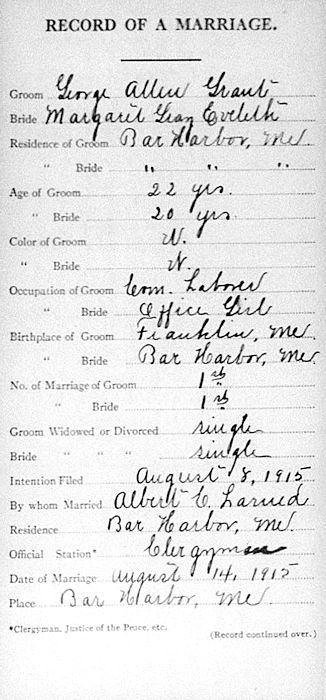 RECORD OF A MARRIAGE.
Groom George Allen Grant
Bride Margaret Gray Eveleth
Residence of Groom Bar Harbor, Me.
" Bride " " "
Age of Groom 22 yrs.
" Bride 20 yrs.
Color of Groom W.
" Bride W.
Occupation of Groom Com. Laborer
" Bride Office Girl
Birthplace of Groom Franklin, Me.
" Bride Bar Harbor, Me.
No. of Marriage of Groom 1st
" Bride 1st
Groom Widowed or Divorced single
Bride " " " single
Intention Filed August 8, 1915
By whom Married Albert C. Larned
Residence Bar Harbor, Me.
Official Station* Clergyman
Date of Marriage August 14, 1915
Place Bar Harbor, Me.
*Clergyman, Justice of the Peace, etc.
(Record continued over.)